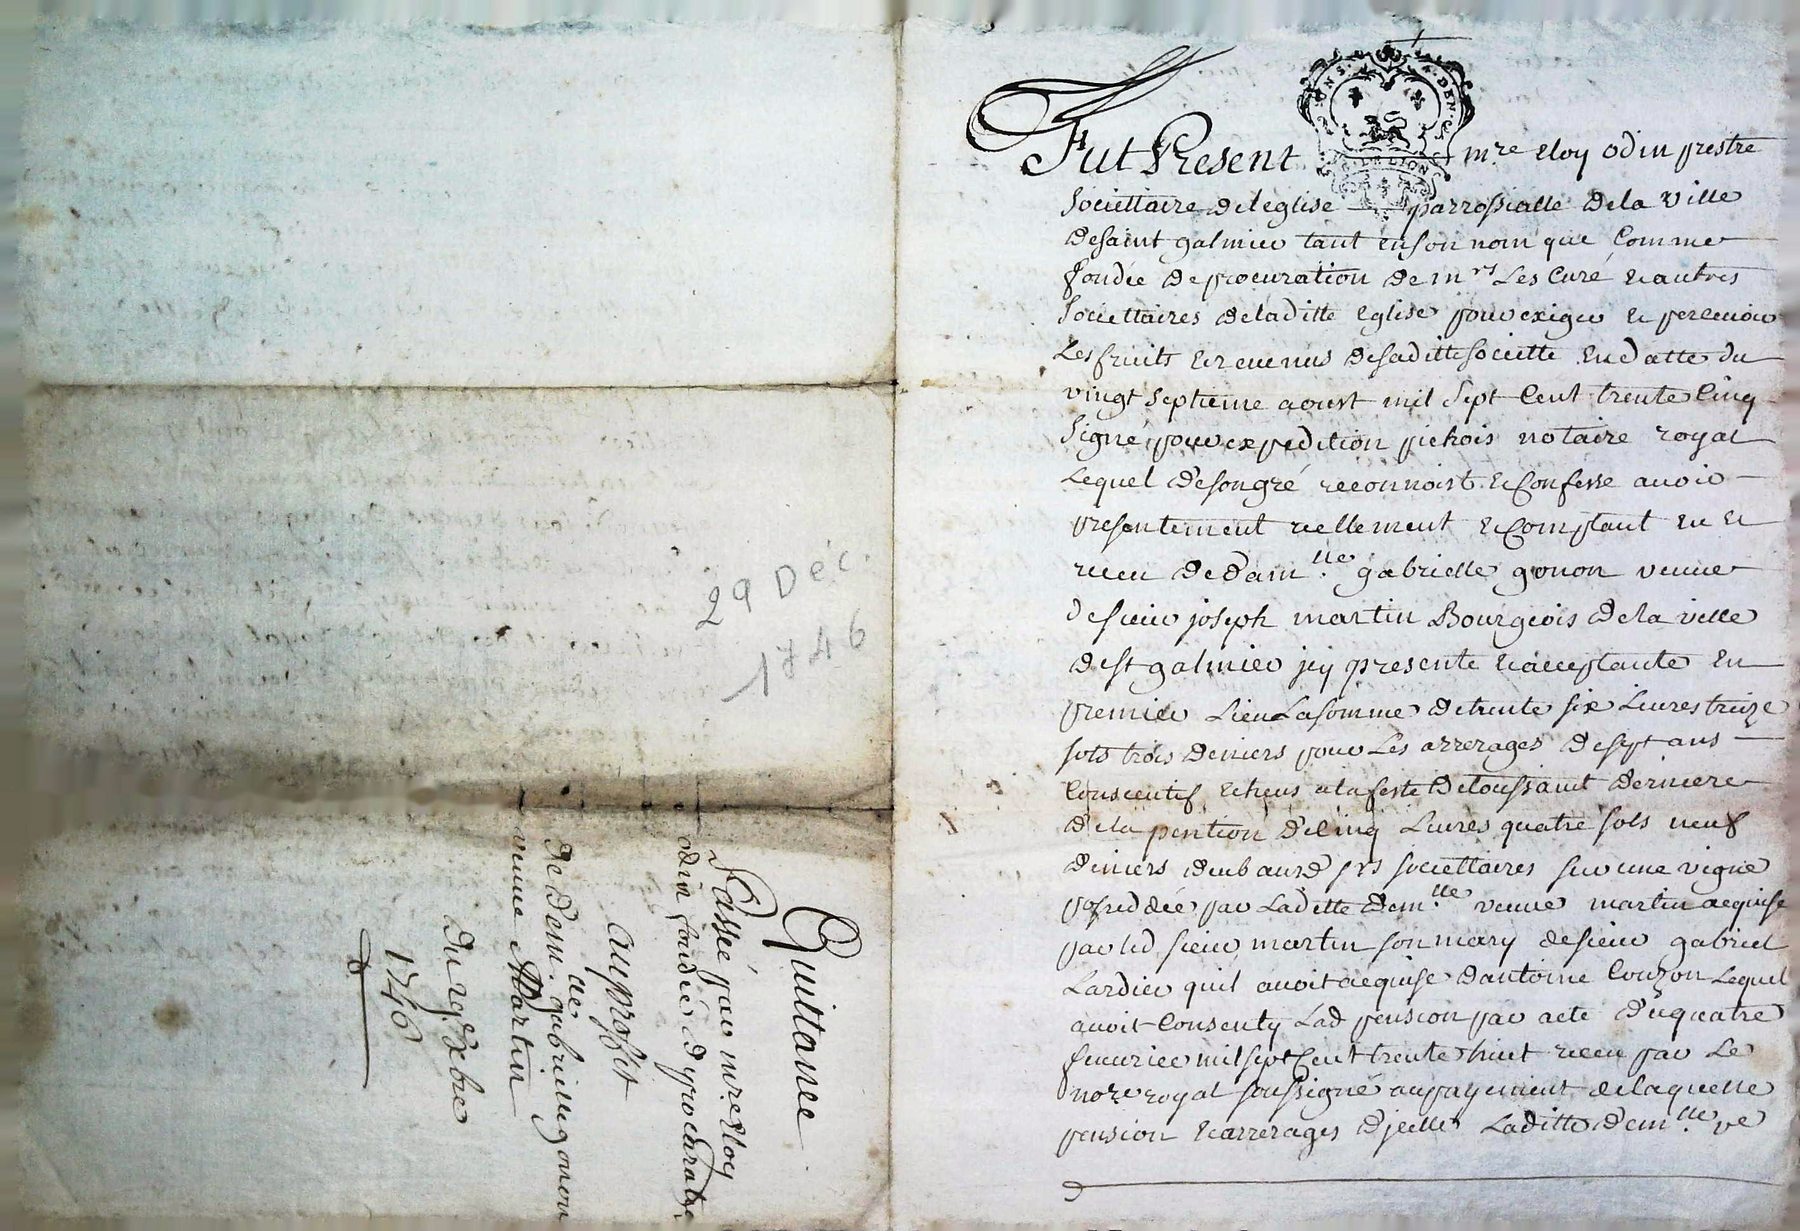 29 Déc.
1746
Quittance
Passé par mre eloy
odin fondé de procuration
au proffit
de demlle gabrielle gonon
veuve Martin
du 29 Xbre
1746
GEN. DE LION
Fut Present mre eloy odin prestre
Societtaire de leglise parrossialle de la ville
de saint galmier tant en son nom que Comme
fondée de procuration de mrs Les Curé et autres
Societtaires de laditte Eglise pour exiger et percevoir
Les fruits et revenus de saditte Societte en datte du
vingt septieme aoust mil sept Cent trente Cinq
Signé pour expedition pichois notaire royal
Lequel de son gré reconnoist et Confesse avoir
presentement reellement et Comptant eu et
receu de damlle gabrielle gonon veuve
de sieur joseph martin Bourgeois de la ville
de st galmier jcy presente et acceptante en
premier Lieu La somme de trente six Livres treize
sols trois deniers pour Les arrerages de sept ans
Consecutif echeus a la feste de toussaint derniere
de la pention de Cinq Livres quatre sols neuf
deniers deub aud srs societtaires sur une vigne
possedée par Laditte demlle veuve martin acquise
par led sieur martin son mary de sieur gabriel
Lardier quil avoit acquise dantoine Couzon Lequel
avoit Consenty Lad pension par acte du quatre
fevrier mil sept Cent trente huit receu par Le
nore royal soussigné au payement de laquelle
pension et arrerages djcelle Laditte demlle ve